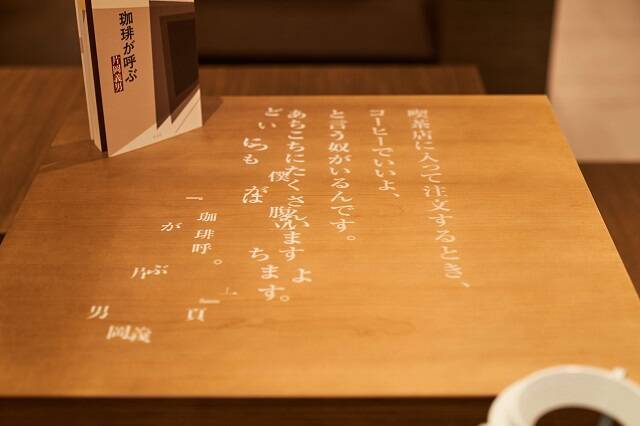 珈琲が呼ぶ
片岡義男
喫茶店に入って注文するとき、
コーヒーでいいよ、
と言う奴がいるんです。
あちこちにたくさんいますよ。
僕
腹
ちます。
「珈琲
が
呼
ぶ
」
片
岡義
男
頁